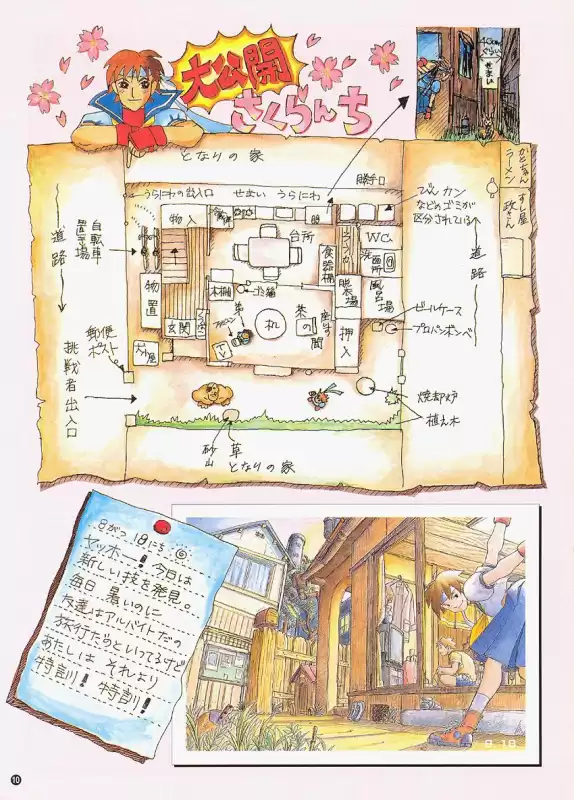 大公開
さくらんち
40cmぐらい
せまい
となりの家
勝手口
うらにわの出入口
せまい
うらにわ
びん、カン
などのゴミが
区分されている
ラーメン
すし屋
政さん
道路
自転車
置き場
物入
台所
食器棚
WC
洗面所
脱衣場
風呂場
道路
物置
本棚
ゴミ箱
弟
ファミコン
机
茶の間
座布団
玄関
TV
押入
ビールケース
プロパンボンベ
郵便
ポスト
犬小屋
挑戦者出入口
焼却炉
植え木
砂山
草
となりの家
8がつ18にち
ヤッホー!今日は
新しい技を発見。
毎日 暑いのに
友達はアルバイトだの
旅行だのといってるけど
あたしは それより
特訓! 特訓!
8.18
10